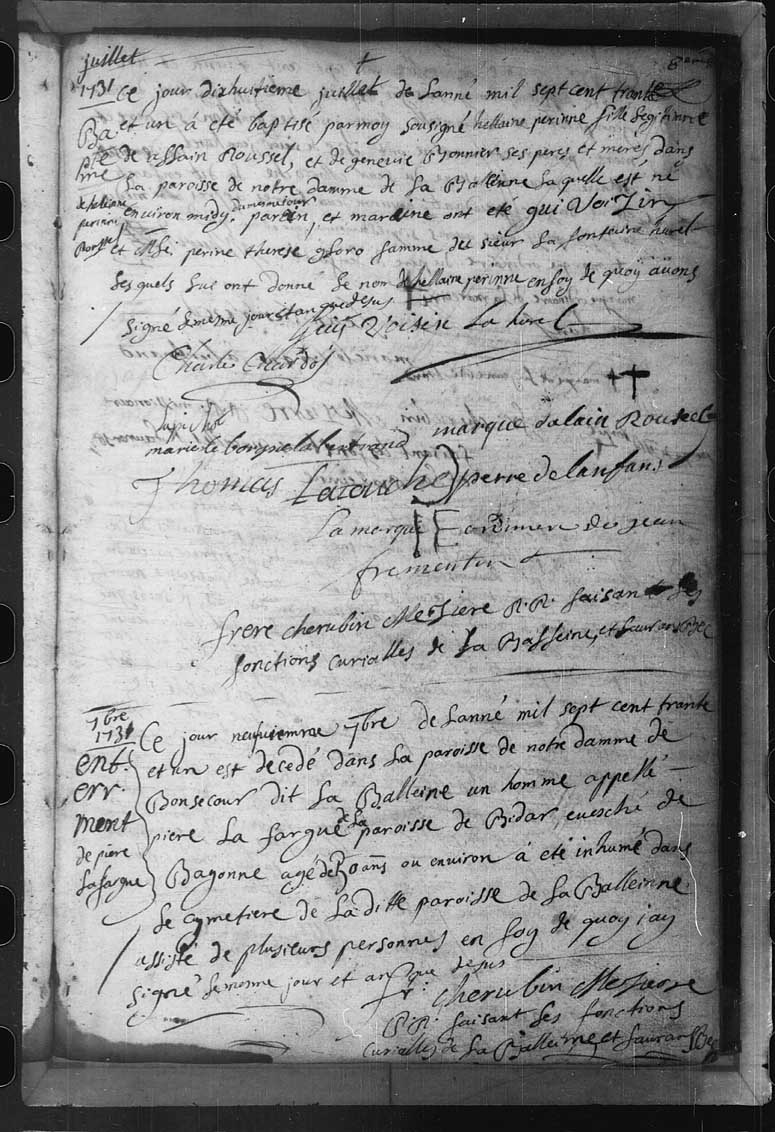 juillet
1731
Ce jour dixhuitieme juillet de Lanné mil sept cent trante
et un à été baptisé par moy sousigné hellaine perinne fille legitimne
Bap
tme
de hellaine
perinne
Roussel
de allain Roussel, et de genevie Bonnier ses peres et meres dans
La paroisse de notre damme de La Balleinne Laquelle est né
environ midy du meme jour parein, et mareine ont été
et perine therese famme du sieur La fontaine hurel
Lesquels lui ont donné Le nom de hellaine perinne en foy de quoy avons
signé Le meme jour et an que desus
Voisin La hurel
Charle
marie le borgne la bertrand
marque dalain Roussel
Thomas Latouche perre de lanfans
La marque ordinere de jean
frementin
frere cherubin Messiere R.R. faisant Les
fonctions curialles de La Balleine, et
7bre
1731
ent.
err.
ment
de piere
Lafargue
Ce jour neufviemme 7bre de Lanné mil sept cent trante
et un est decedé dans La paroisse de notre damme de
Bonsecour dit La Balleine un homme appellé
piere La fargue de La paroisse de Bidar, evesché de
Bayonne agé de 30 anns ou environ à eté inhumé dans
Le cymetiere de Laditte paroisse de La Balleinne
assisté de plusieurs personnes en foy de quoy jay
signé Le meme jour et an que desus
fr. cherubin Messiere
R.R. faisant Les fonctions
curialles de La Balleine et